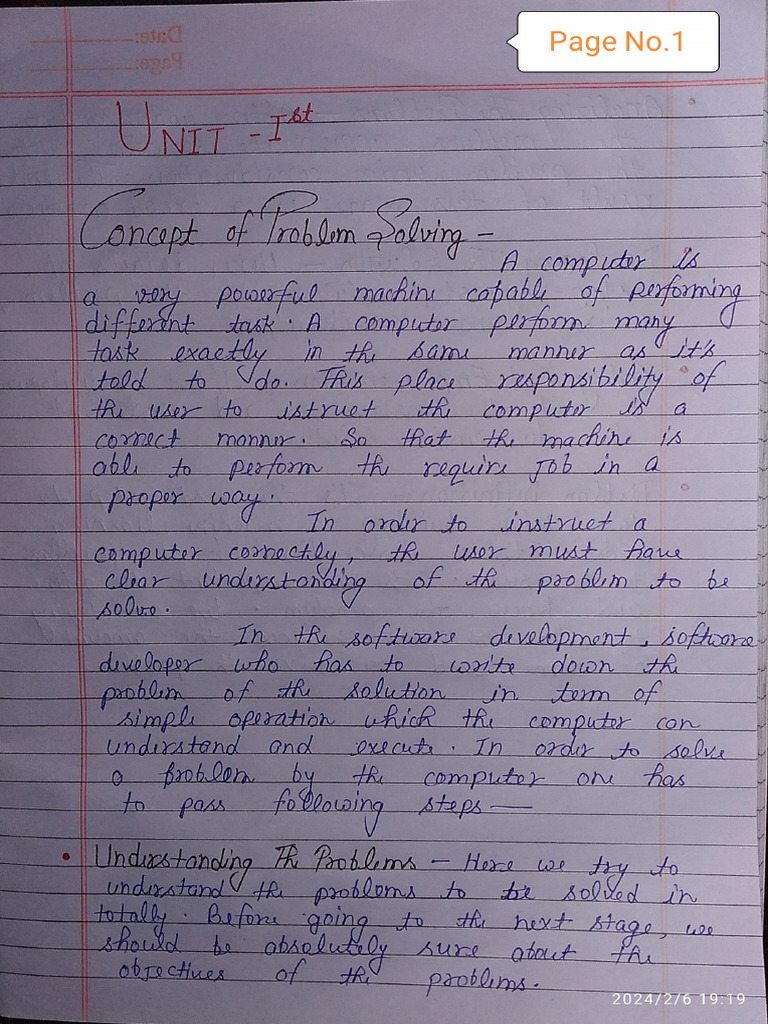 Date:
Page:
Page No.1
UNIT - Ist
Concept of Problem Solving -
A computer is
a very powerful machine capable of performing
different task. A computer perform many
task exactly in the same manner as it's
told to do. This place responsibility of
the user to istruct the computer is a
correct manner. So that the machine is
able to perform the require Job in a
proper way.
In order to instruct a
computer correctly, the user must have
clear understanding of the problem to be
solve.
In the software development, software
developer who has to write down the
problem of the solution in term of
simple operation which the computer can
understand and execute. In order to solve
a problem by the computer one has
to pass following steps —
• Understanding The Problems - Here we try to
understand the problems to be solved in
totally. Before going to the next stage, we
should be absolutely sure about the
objectives of the problems.
2024/2/6 19:19